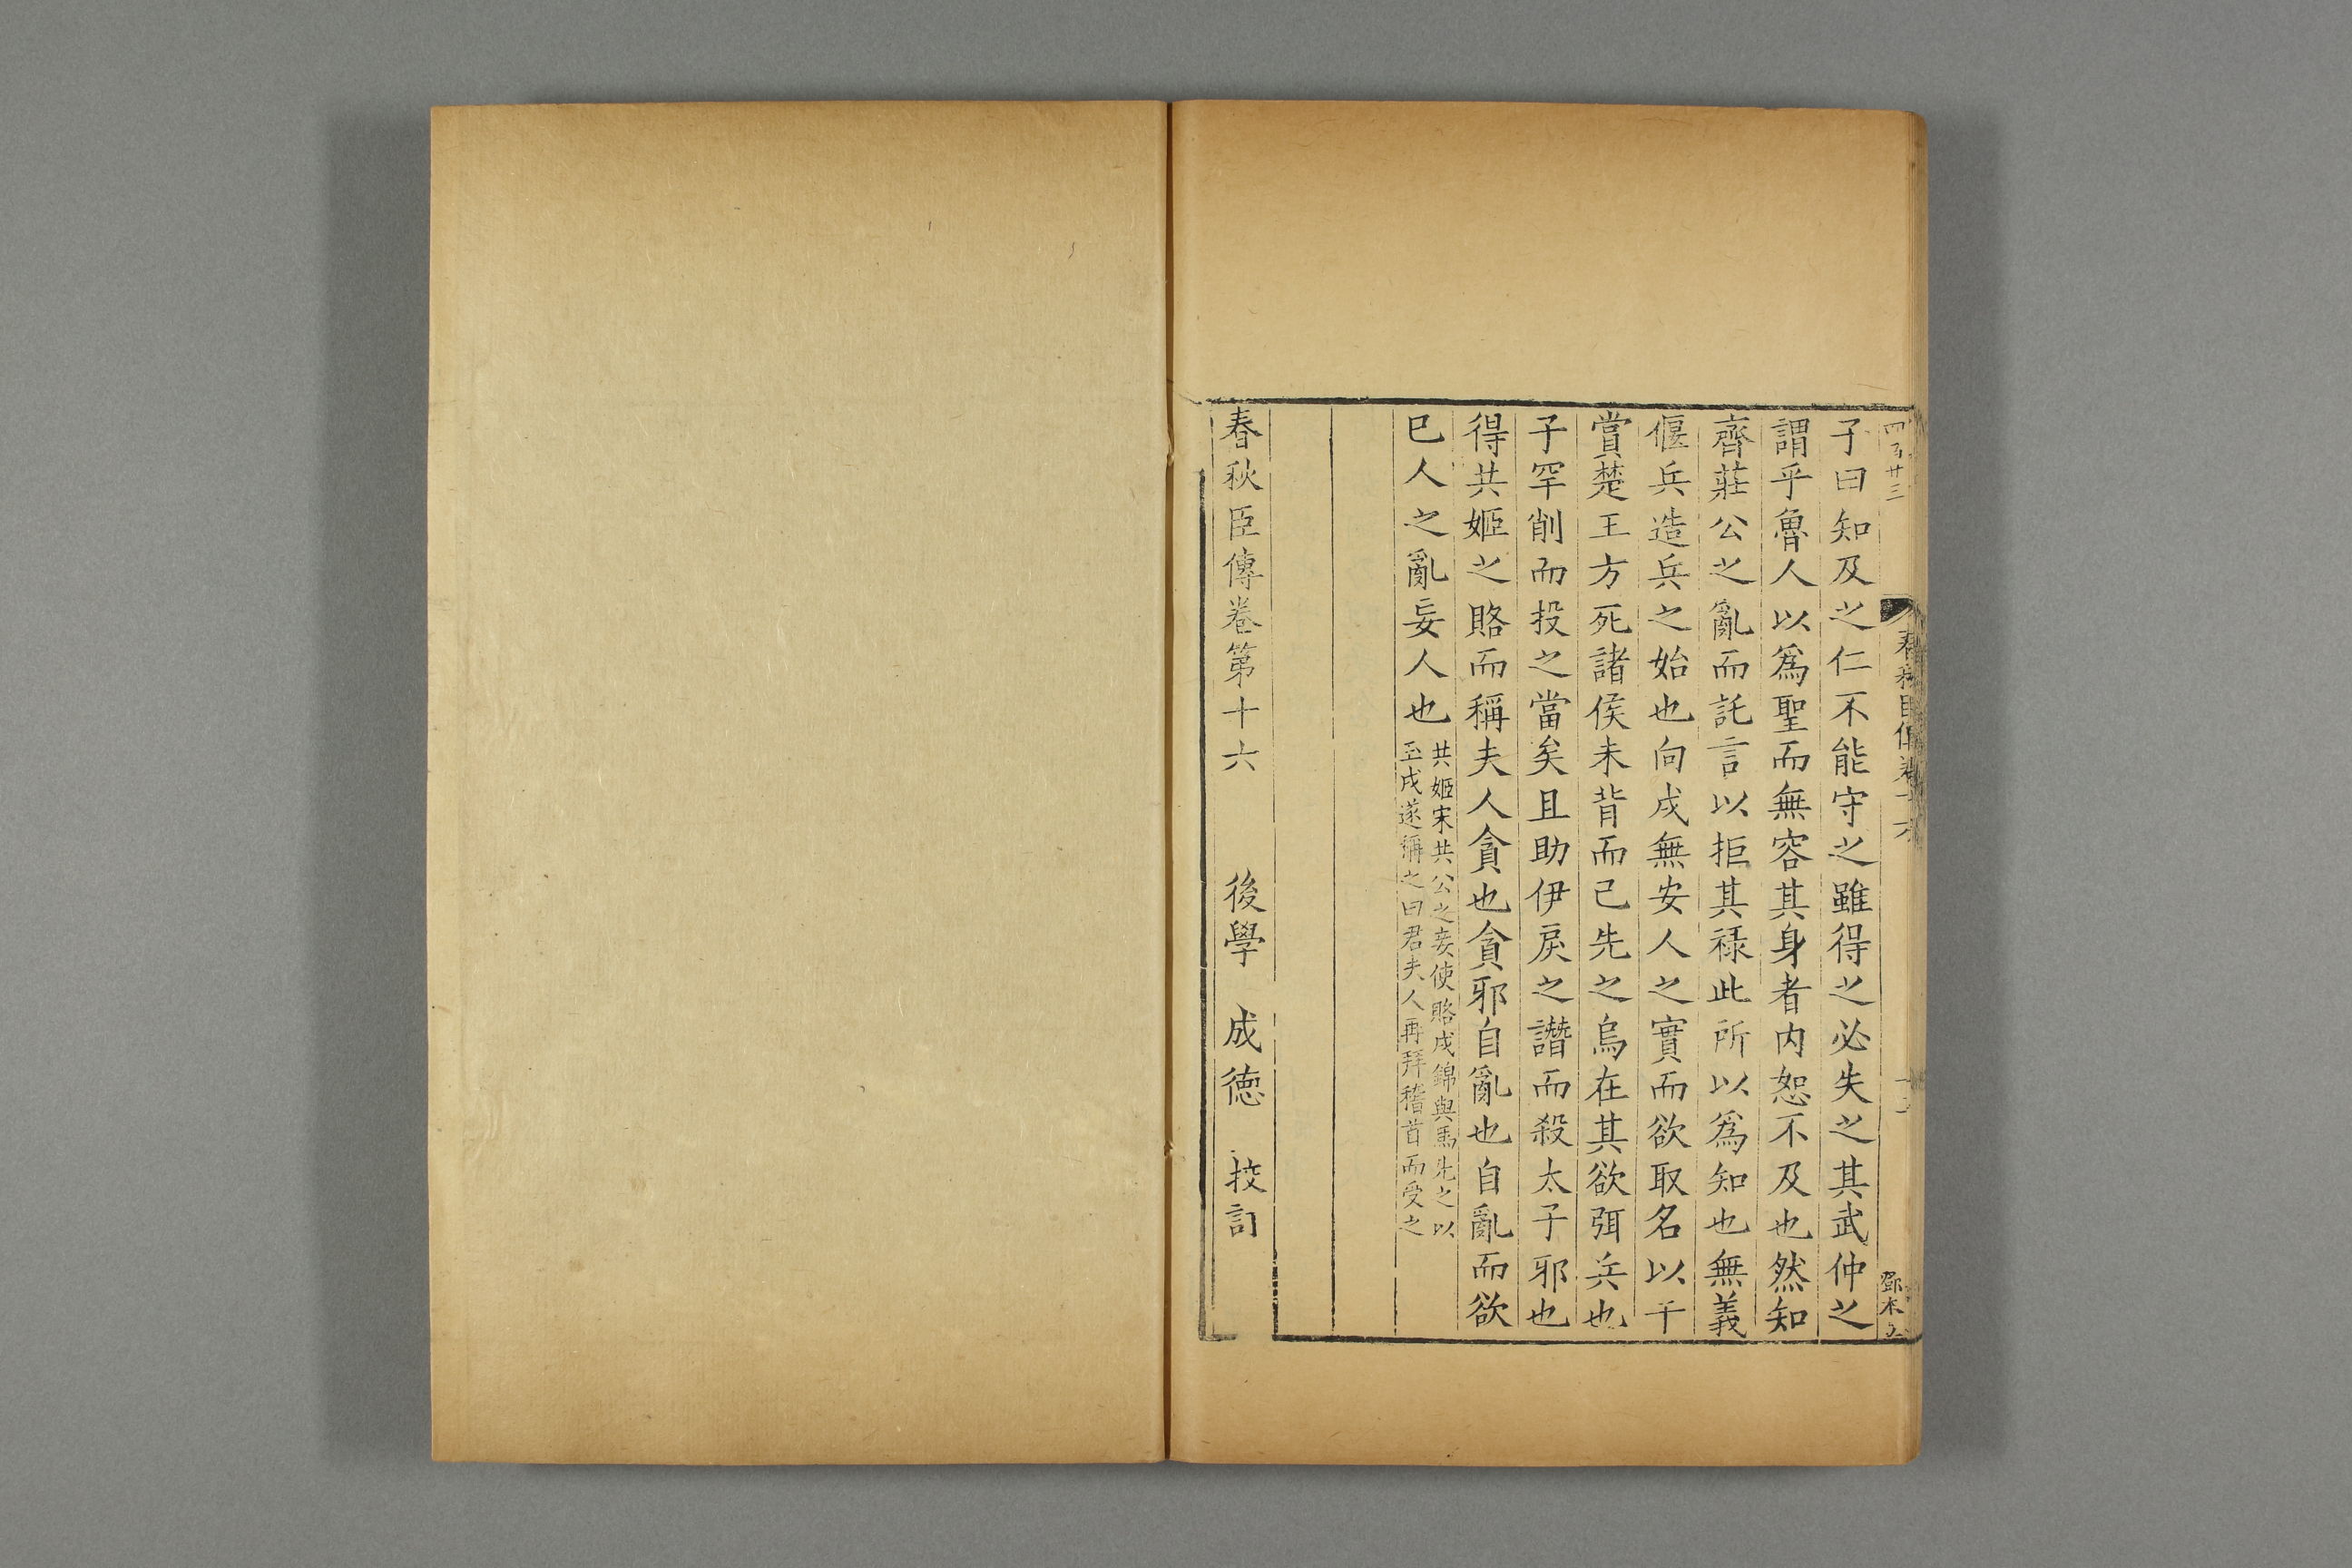 四百廿三
子曰知及之仁不能守之雖得之必失之其武仲之
謂乎魯人以爲聖而無容其身者内恕不及也然知
齊莊公之亂而託言以拒其祿此所以爲知也無義
偃兵造兵之始也向戌無安人之實而欲取名以干
賞楚王方死諸侯未背而已先之烏在其欲弭兵也
子罕削而投之當矣且助伊戾之譖而殺太子邪也
得共姬之賂而稱夫人貪也貪邪自亂也自亂而欲
已人之亂妄人也
共姬宋共公之妾使賂戌錦與馬先之以
玉戌遂稱之曰君夫人再拜稽首而受之
春秋臣傳卷第十六 後學 成德 挍訂